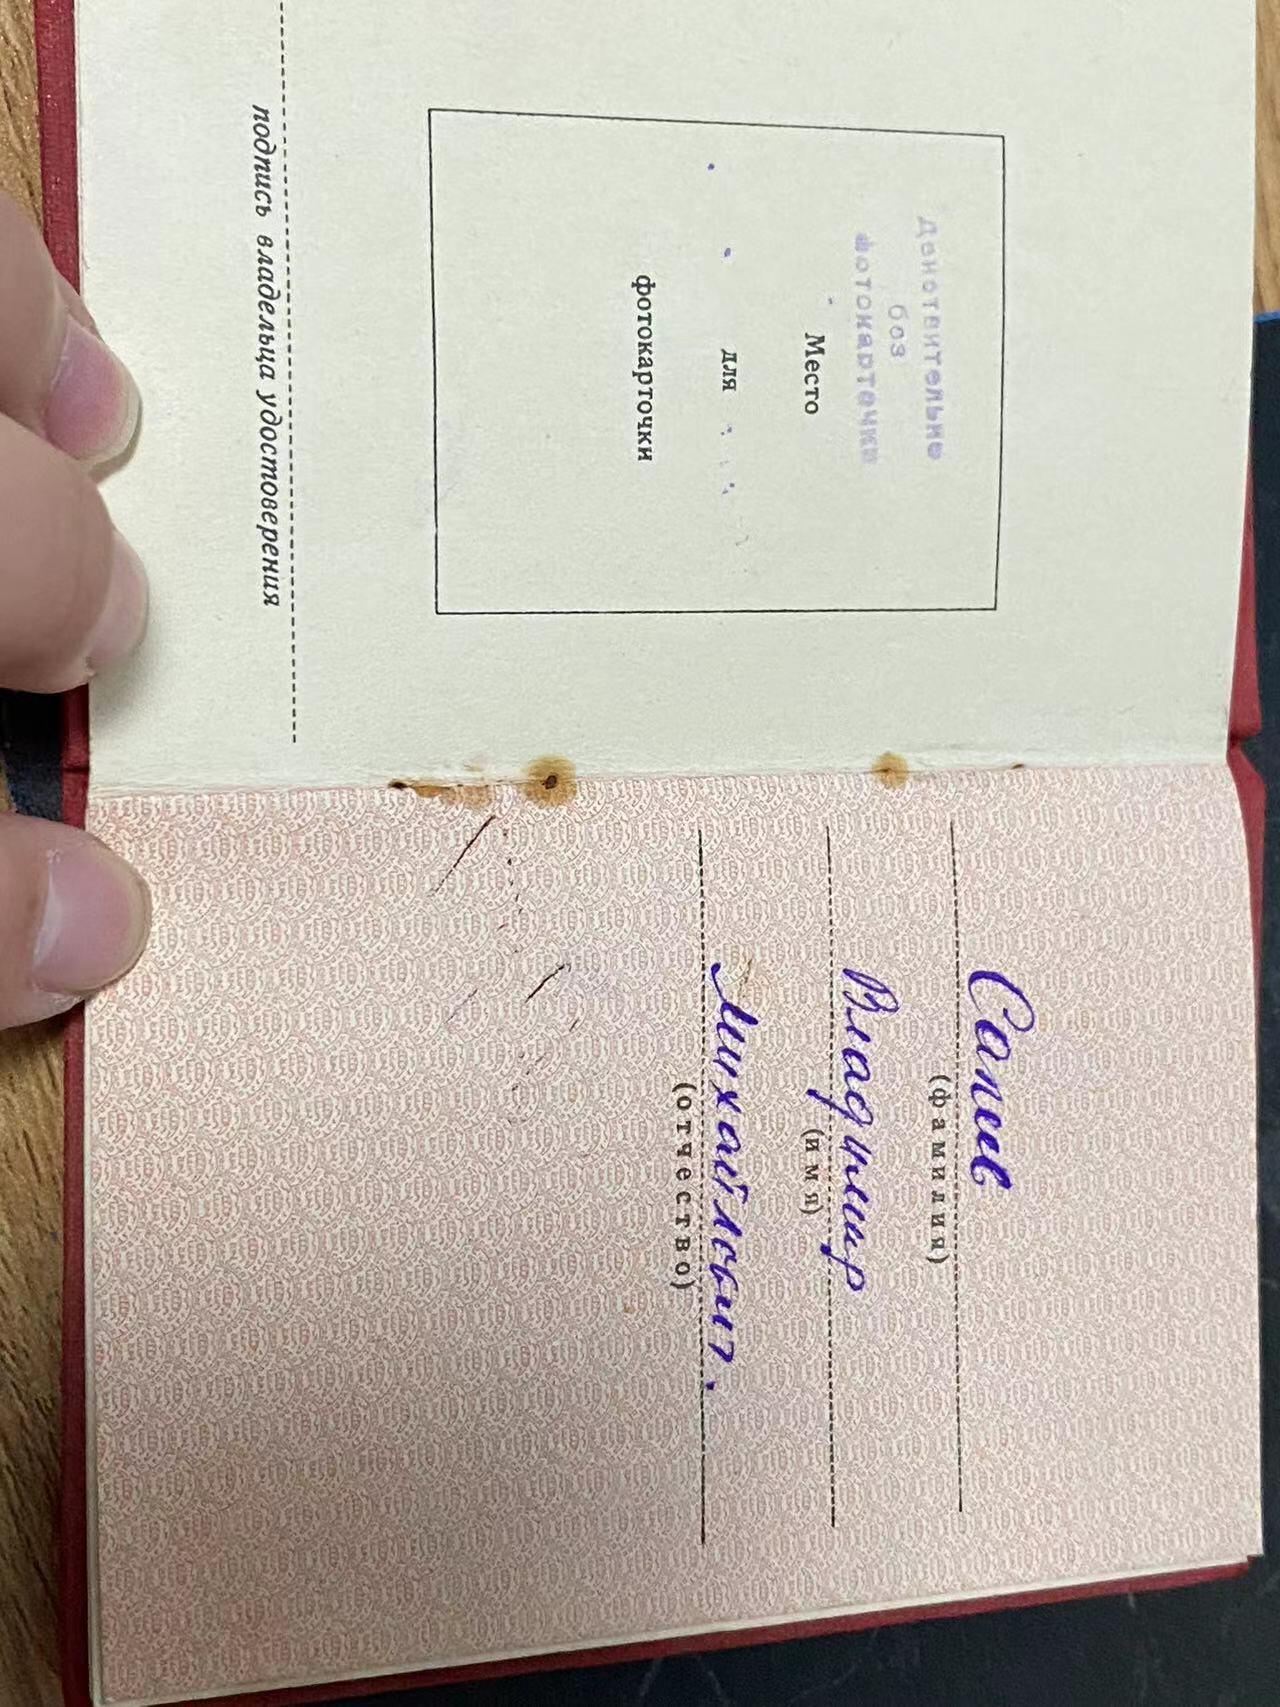 Действительно
без
фотокарточки
Место
для
фотокарточки
подпись владельца удостоверения
Сапеев
(фамилия)
Владимир
(имя)
Михайлович.
(отчество)